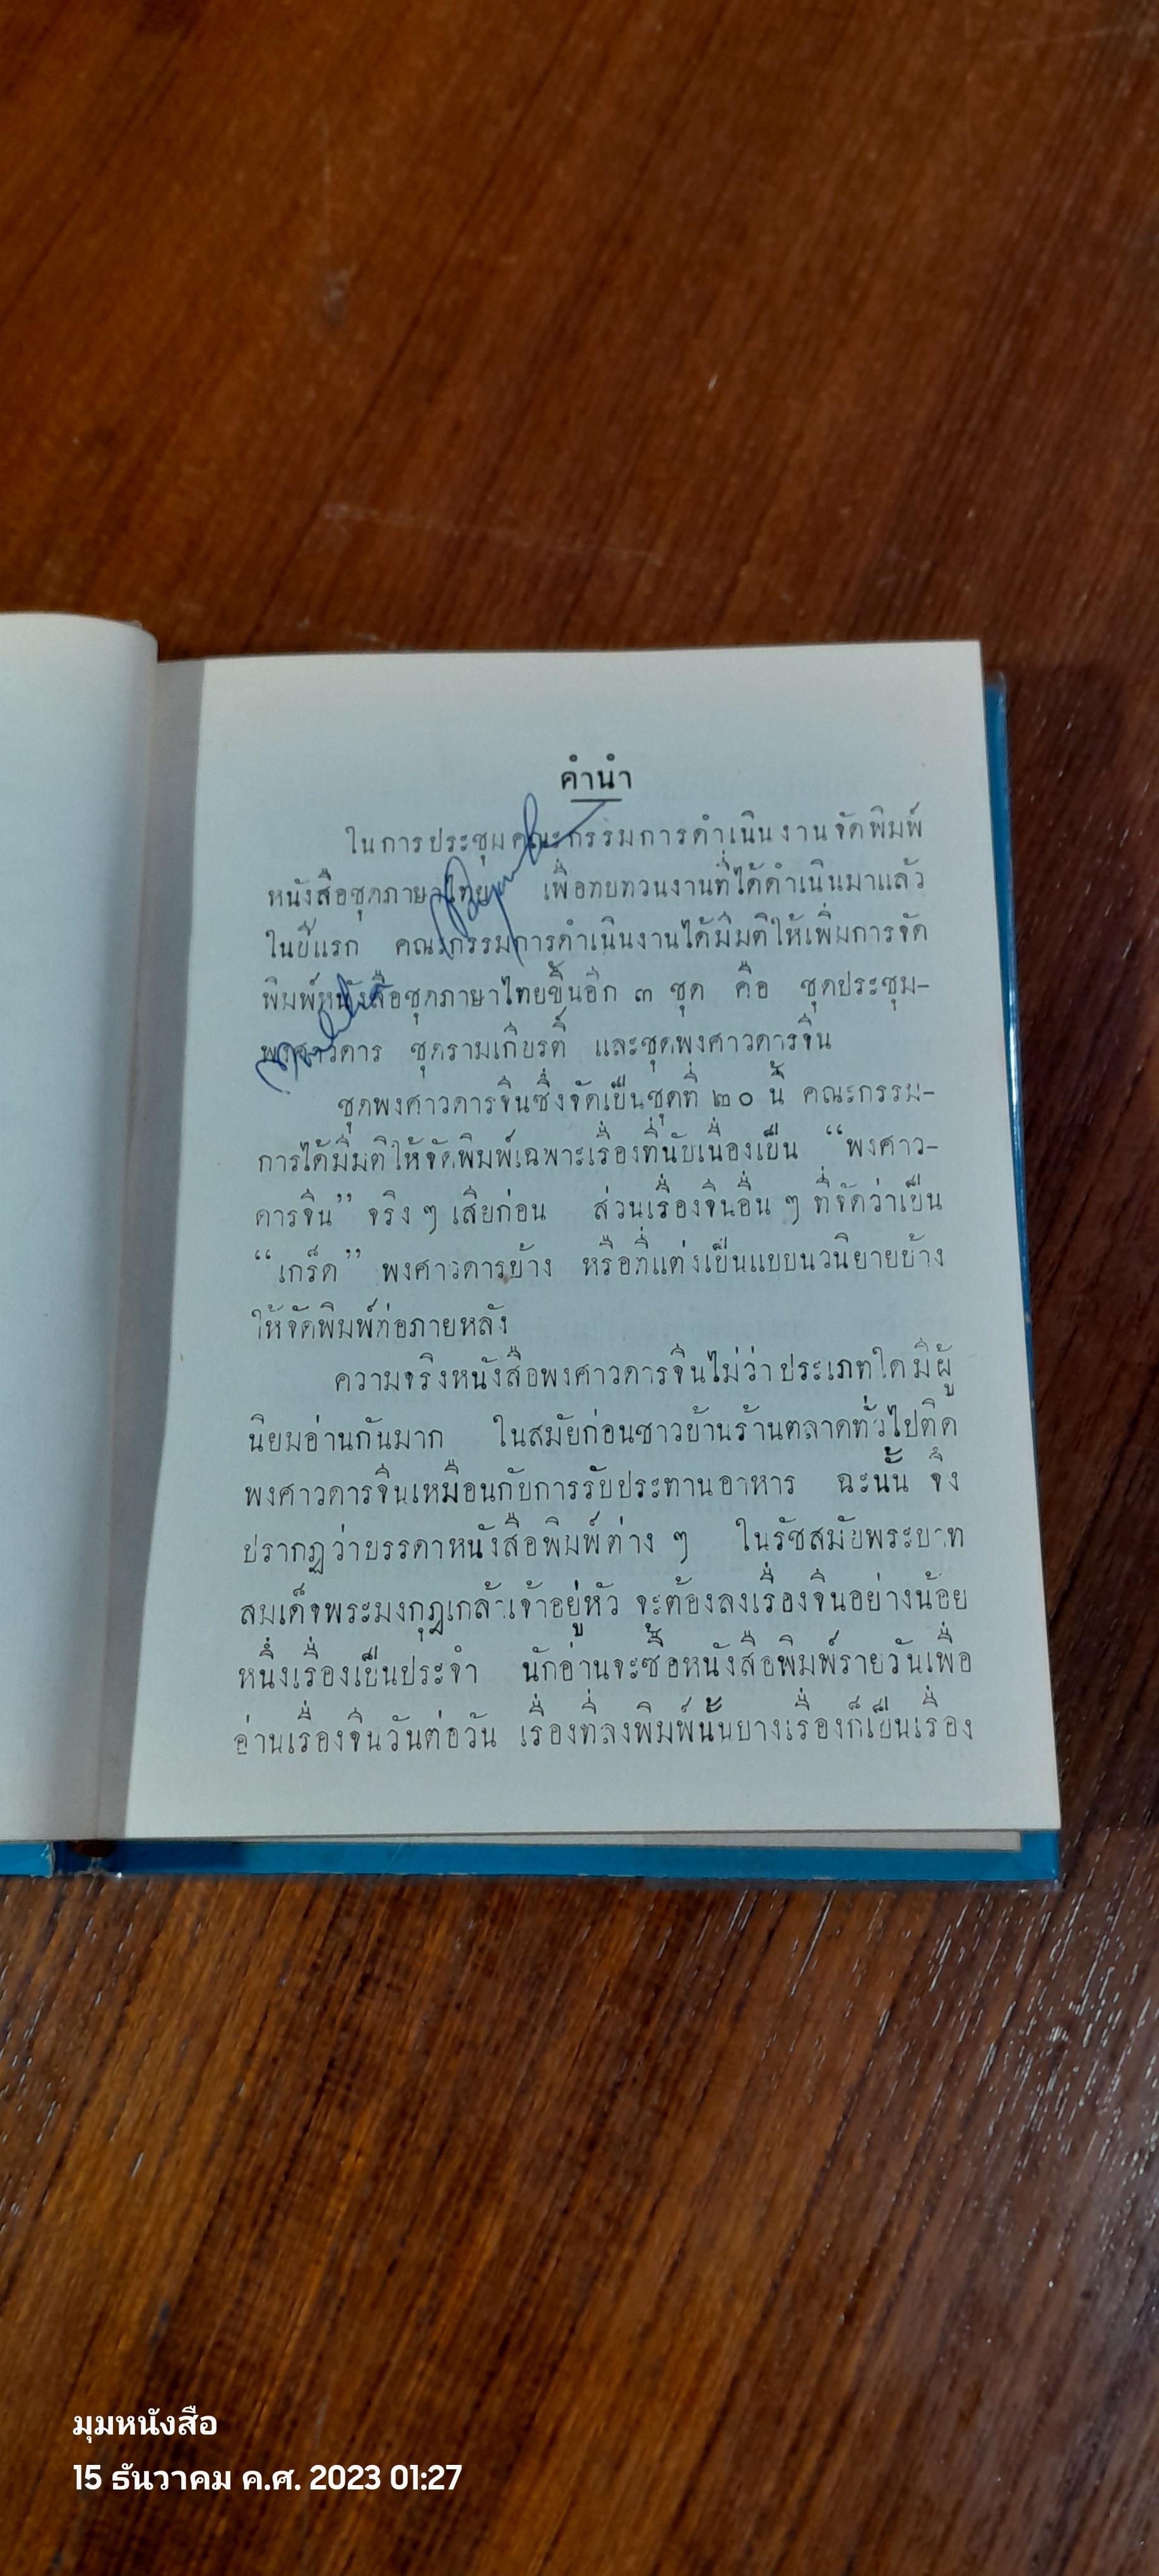 คำนำ
ในการประชุมคณะกรรมการดำเนินงานจัดพิมพ์
หนังสือชุดภาษาไทย เพื่อทบทวนงานที่ได้ดำเนินมาแล้ว
ในปีแรก คณะกรรมการดำเนินงานได้มีมติให้เพิ่มการจัด
พิมพ์หนังสือชุดภาษาไทยขึ้นอีก ๓ ชุด คือ ชุดประชุม-
พงศาวดาร ชุดรามเกียรติ์ และชุดพงศาวดารจีน
ชุดพงศาวดารจีนซึ่งจัดเป็นชุดที่ ๒๐ นี้ คณะกรรม-
การได้มีมติให้จัดพิมพ์เฉพาะเรื่องที่นับเนื่องเป็น “พงศาว-
ดารจีน” จริง ๆ เสียก่อน ส่วนเรื่องจีนอื่น ๆ ที่จัดว่าเป็น
“เกร็ด” พงศาวดารบ้าง หรือที่แต่งเป็นแบบนวนิยายบ้าง
ให้จัดพิมพ์ต่อภายหลัง
ความจริงหนังสือพงศาวดารจีนไม่ว่าประเภทใด มีผู้
นิยมอ่านกันมาก ในสมัยก่อนชาวบ้านร้านตลาดทั่วไปติด
พงศาวดารจีนเหมือนกับการรับประทานอาหาร ฉะนั้น จึง
ปรากฏว่าบรรดาหนังสือพิมพ์ต่าง ๆ ในรัชสมัยพระบาท
สมเด็จพระมงกุฎเกล้าเจ้าอยู่หัว จะต้องลงเรื่องจีนอย่างน้อย
หนึ่งเรื่องเป็นประจำ นักอ่านจะซื้อหนังสือพิมพ์รายวันเพื่อ
อ่านเรื่องจีนวันต่อวัน เรื่องที่ลงพิมพ์นั้นบางเรื่องก็เป็นเรื่อง
มุมหนังสือ
15 ธันวาคม ค.ศ. 2023 01:27